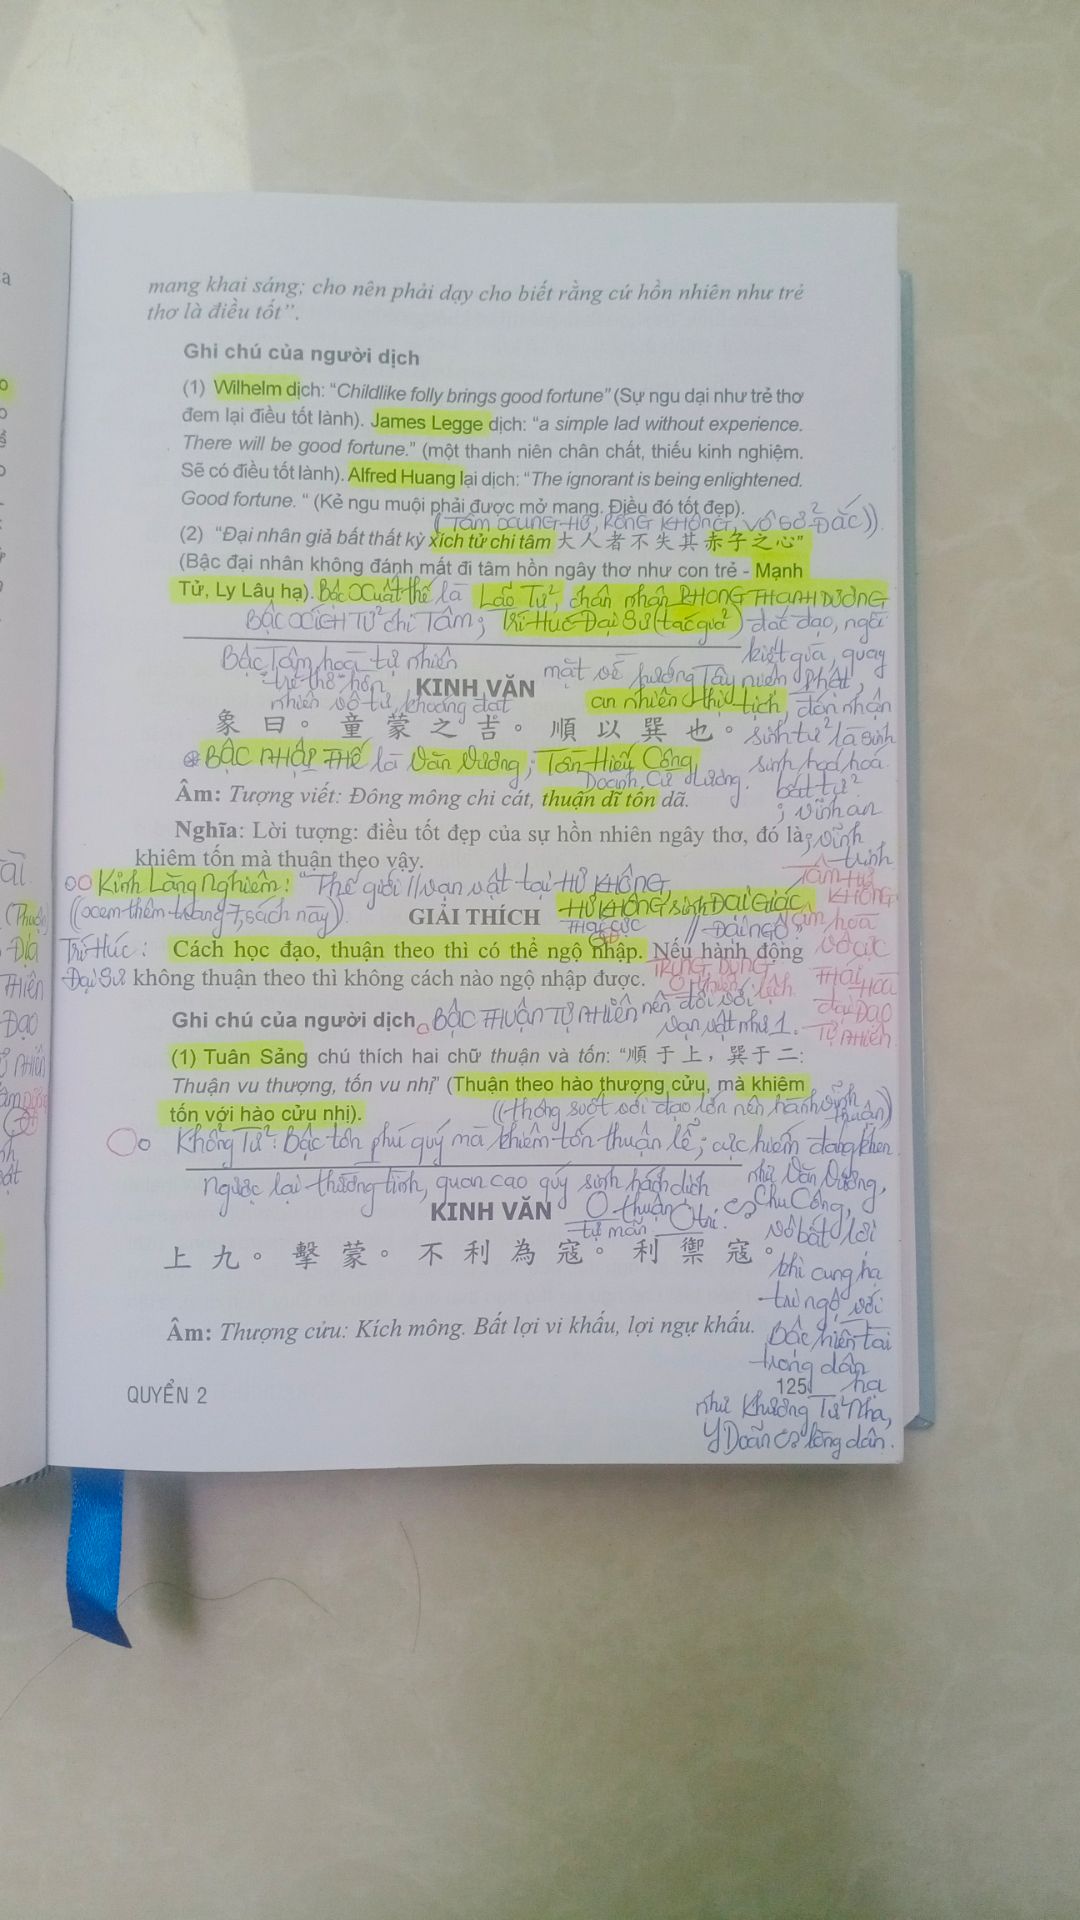 mang khai sáng; cho nên phải dạy cho biết rằng cứ hồn nhiên như trẻ
thơ là điều tốt”.
Ghi chú của người dịch
(1) Wilhelm dịch: “Childlike folly brings good fortune” (Sự ngu dại như trẻ thơ
đem lại điều tốt lành). James Legge dịch: “a simple lad without experience.
There will be good fortune.” (một thanh niên chân chất, thiếu kinh nghiệm.
Sẽ có điều tốt lành). Alfred Huang lại dịch: “The ignorant is being enlightened.
Good fortune. “ (Kẻ ngu muội phải được mở mang. Điều đó tốt đẹp).
((TÂM XUNG HƯ, RỖNG KHÔNG, VÔ SỞ ĐẮC)).
(2) “Đại nhân giả bất thất kỳ xích tử chi tâm 大人者不失其赤子之心”
(Bậc đại nhân không đánh mất đi tâm hồn ngây thơ như con trẻ - Mạnh
Tử, Ly Lâu hạ). Bậc Xuất thế là Lão Tử, chân nhân PHONG THANH DƯƠNG
BẬC XÍCH TỬ chi TÂM; Trí Húc Đại Sư (tác giả) đắc đạo, ngồi
kiết già, quay
Bậc Tâm hoà tự nhiên
mặt về hướng Tây niệm Phật,
"trẻ thơ" hồn
KINH VĂN
an nhiên thị tịch, đón nhận
nhiên vô tư, khoáng đạt
象曰。童蒙之吉。順以巽也。
sinh tử là sinh
⊛ BẬC NHẬP THẾ là Văn Vương, Tần Hiếu Công,
sinh hoá hoá
Doanh Cừ Lương.
bất tử
Âm: Tượng viết: Đông mông chi cát, thuận dĩ tốn dã.
; vĩnh an
Nghĩa: Lời tượng: điều tốt đẹp của sự hồn nhiên ngây thơ, đó là
; vĩnh
khiêm tốn mà thuận theo vậy.
trinh
Kinh Lăng Nghiêm: "Thế giới // vạn vật tại HƯ KHÔNG,
TÂM HƯ
KHÔNG
((xem thêm trang 7, sách này)).
GIẢI THÍCH
HƯ KHÔNG sinh ĐẠI GIÁC
THÁI CỰC
// ĐẠI NGỘ"
Tâm hoà
Trí Húc:
Cách học đạo, thuận theo thì có thể ngộ nhập. Nếu hành động
vô cực
Đại Sư
không thuận theo thì không cách nào ngộ nhập được.
TRUNG DUNG
THÁI HOÀ
đại ĐẠO
TỰ NHIÊN.
Ghi chú của người dịch
BẬC THUẬN TỰ NHIÊN nên đối với
vạn vật như 1.
(1) Tuân Sảng chú thích hai chữ thuận và tốn: “順于上，巽于二:
Thuận vu thượng, tốn vu nhị” (Thuận theo hào thượng cửu, mà khiêm
tốn với hào cửu nhị).
((thông suốt với đạo lớn nên hành vĩnh
thuận))
Khổng Tử: Bậc tôn phú quý mà khiêm tốn thuận lễ; cực hiếm đáng khen
như Văn Vương,
Ngược lại thường tình, quan cao quý sinh hách dịch
Chu Công,
KINH VĂN
O thuận
tự mãn.
vô bất lợi
上九。擊蒙。不利為寇。利禦寇。
khi cung hạ
tri ngộ với
Âm: Thượng cửu: Kích mông. Bất lợi vi khấu, lợi ngự khấu.
Bậc hiền tài
trong dân
hạ
QUYỂN 2
125
như Khương Tử Nha,
Y Doãn lòng dân.